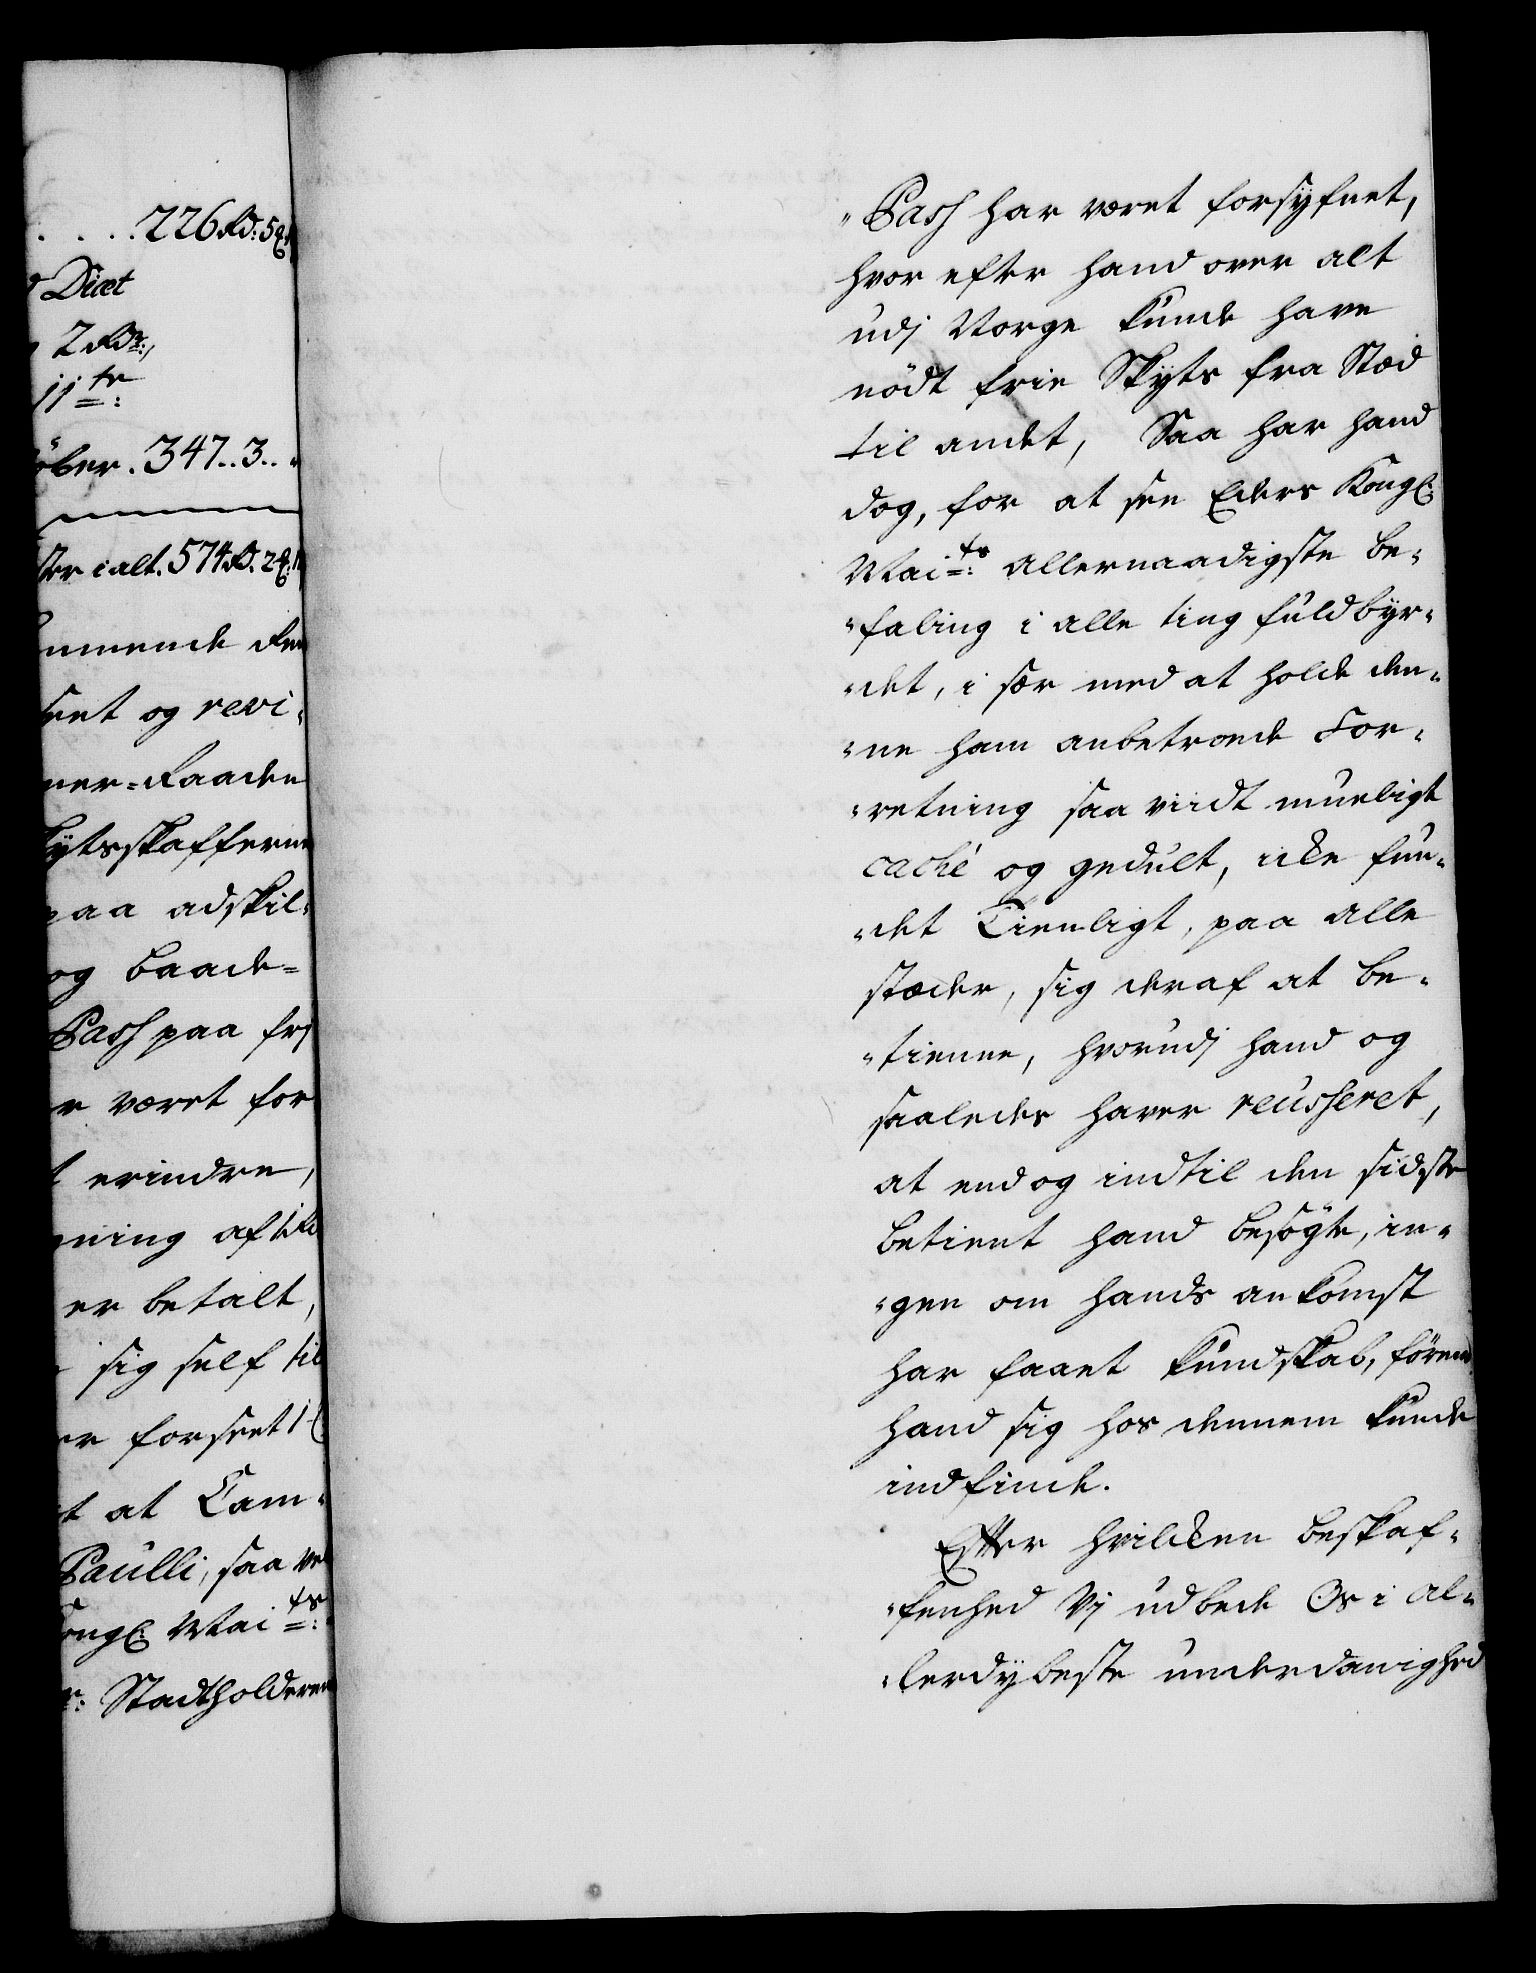 . . . . 226 Rd: 5
Diæt
2 Rdr:,
11 tr:
öber. 347..3..
ster i alt. 574 Rd. 2
mmende
seet og revi-
mer-Raaden
kytsskafferne
paa adskil-
og baade-
Pass paa frj
r været for
t erindre,
ning af
er betalt,
sig self til
er forseet
t at Cam-
Paulli, saa vel
Kongl: Maits:
r: Stadtholderen
"Pass har været forsyfnet,
hvor efter hand over alt
udj Norge kunde have
nödt frie Skyts fra Stæd
til andet, Saa har hand
dog, for at see Eders Kongl:
Maits: allernaadigste be-
"faling i alle ting fuldbyr-
"det, i sær med at holde den-
"ne ham anbetroede For-
"retning saa viidt mueligt
caché og gedult, icke fun-
"det Tienligt, paa alle
stæder, sig deraf at be-
"tienne, hvorudj hand og
saaledes haver reüsseret,
at endog indtil den sidste
betient hand besögte, in-
"gen om hands ankomst
har faaet kundskab, förend
hand sig hos dennem kunde
indfinde.
Efter hvilcken beskaf-
"fenhed Vj udbede Os i al-
"lerdybeste underdanighed